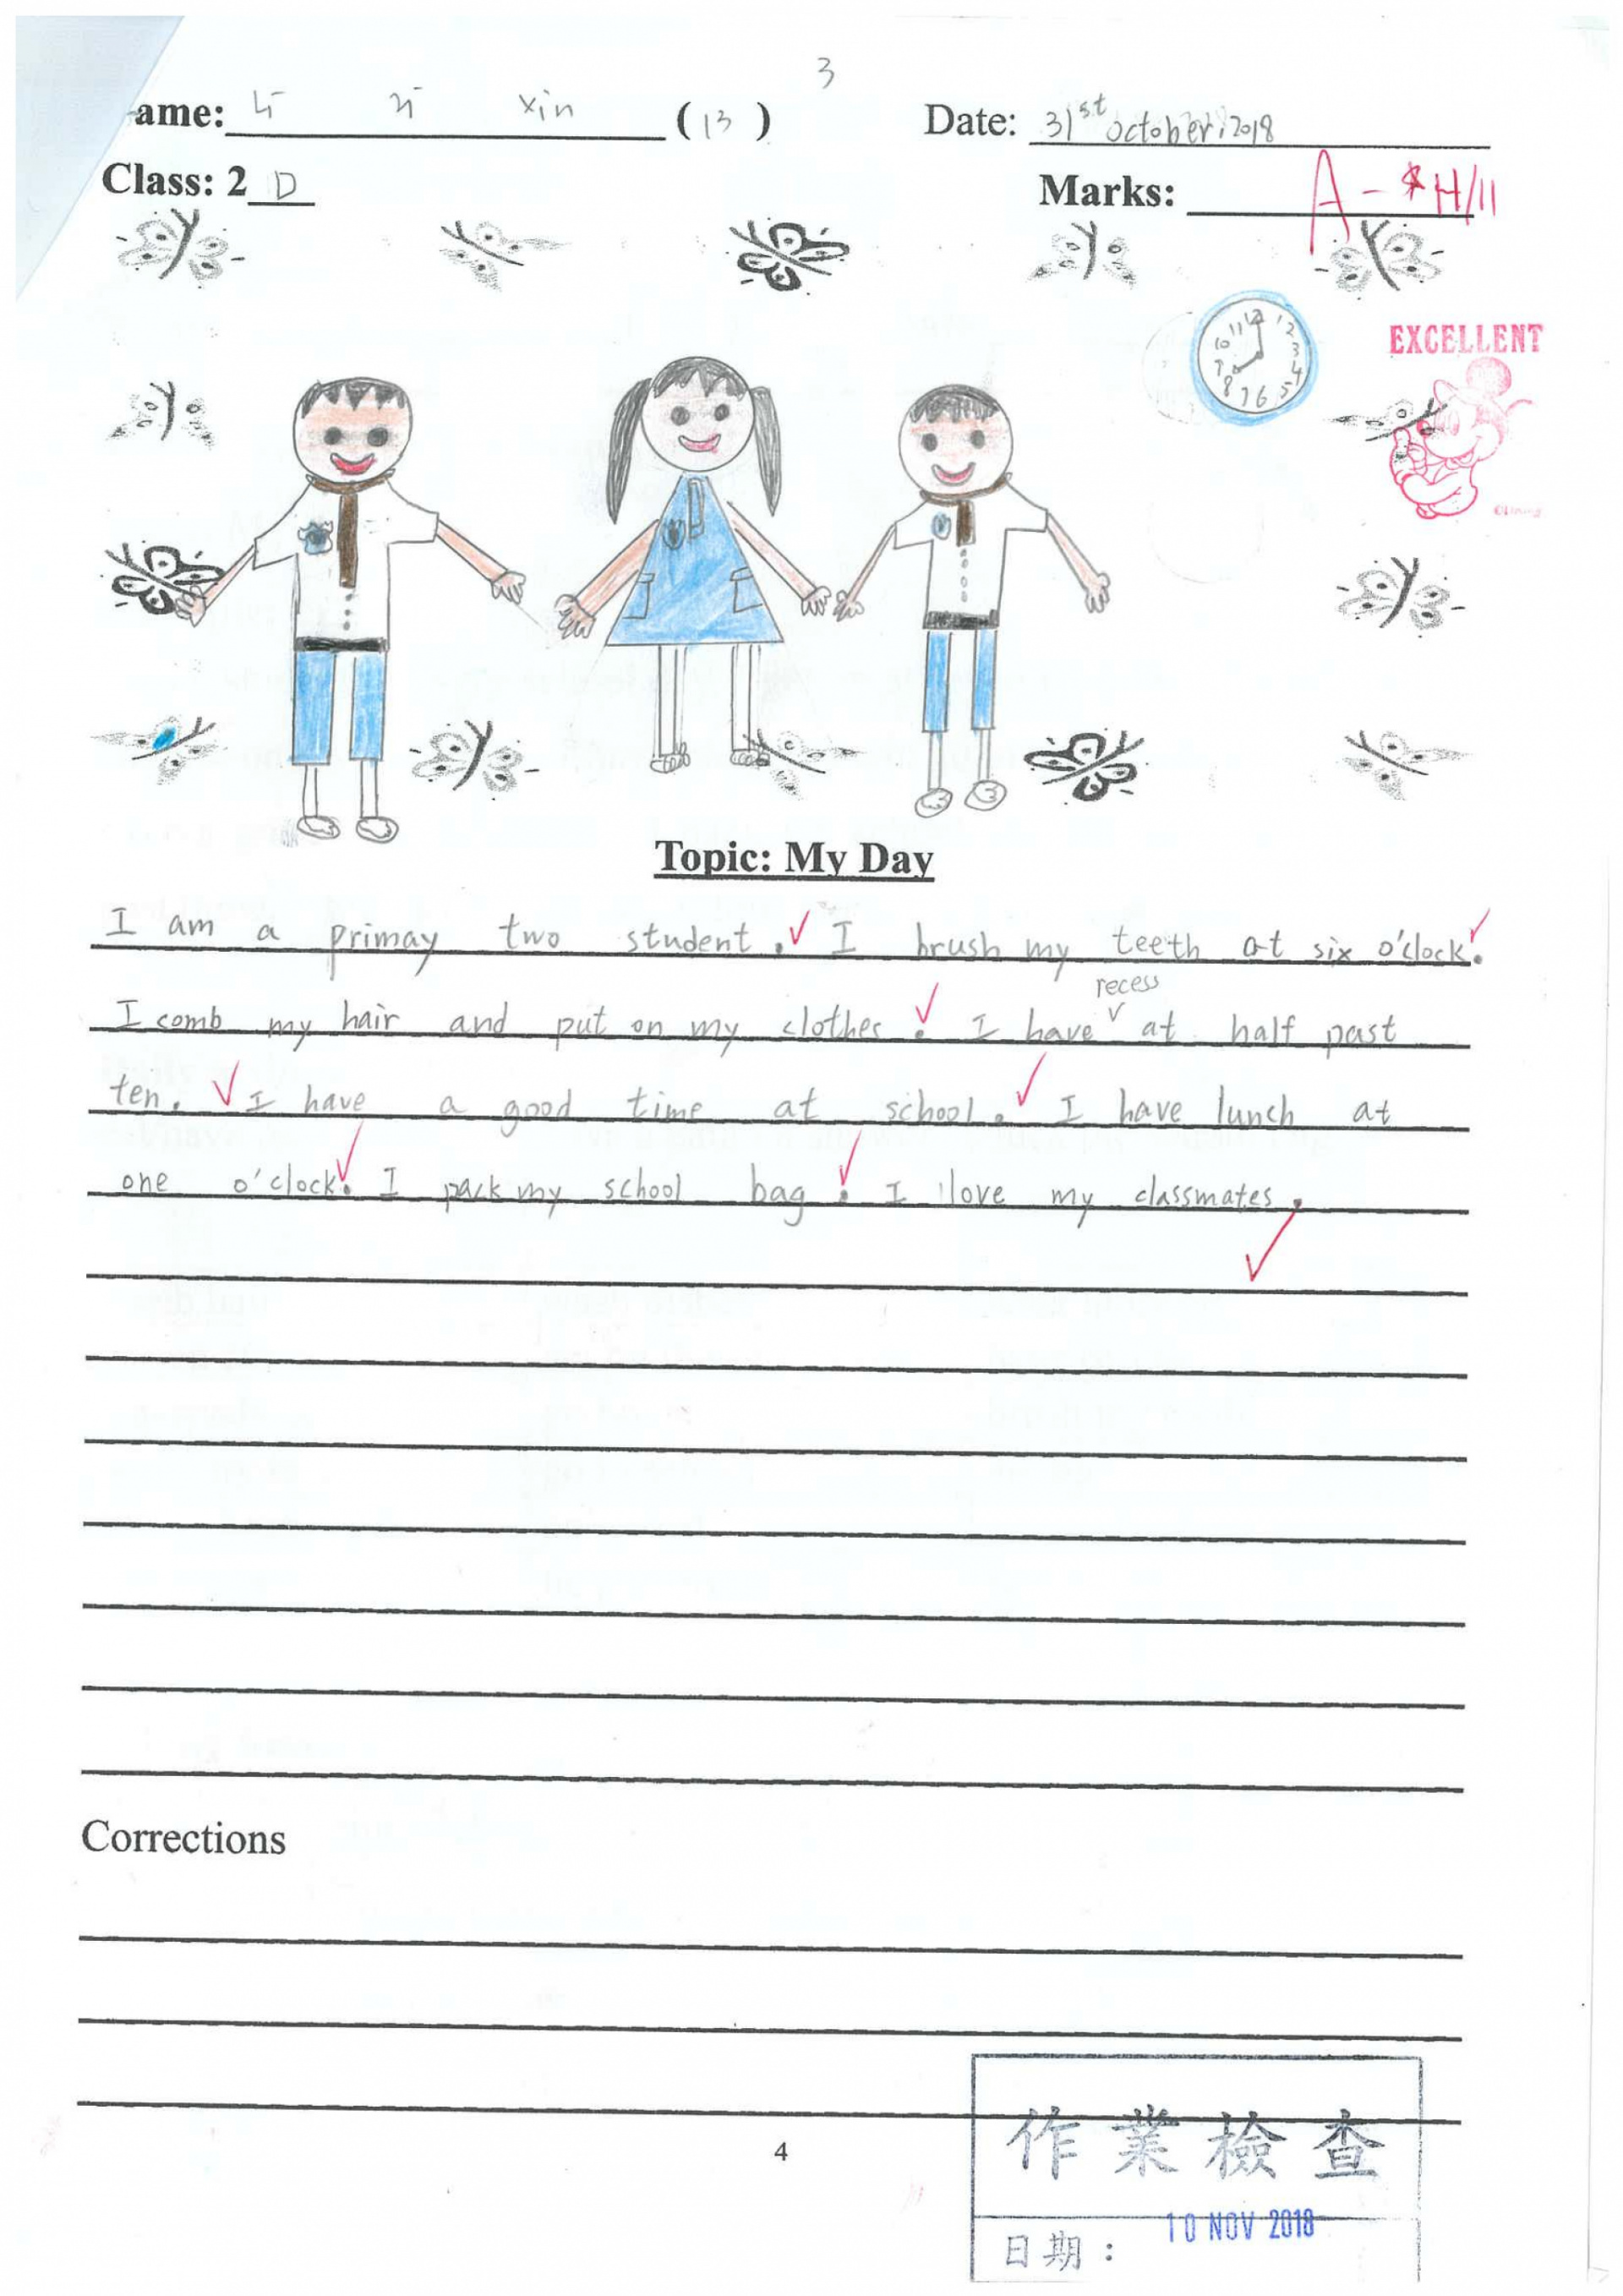 3
ame: xin (13) Date: 31st October, 2018
Class: 2 D Marks: A-
12 1 2 3 4 5 6 7 8 9 10 11
EXCELLENT
Topic: My Day
I am a primay two student. I brush my teeth at six o'clock.
recess
I comb my hair and put on my clothes. I have at half past
ten. I have a good time at school. I have lunch at
one o'clock. I pack my school bag. I love my classmates.
Corrections
4
作業檢查
日期: 10 NOV 2018